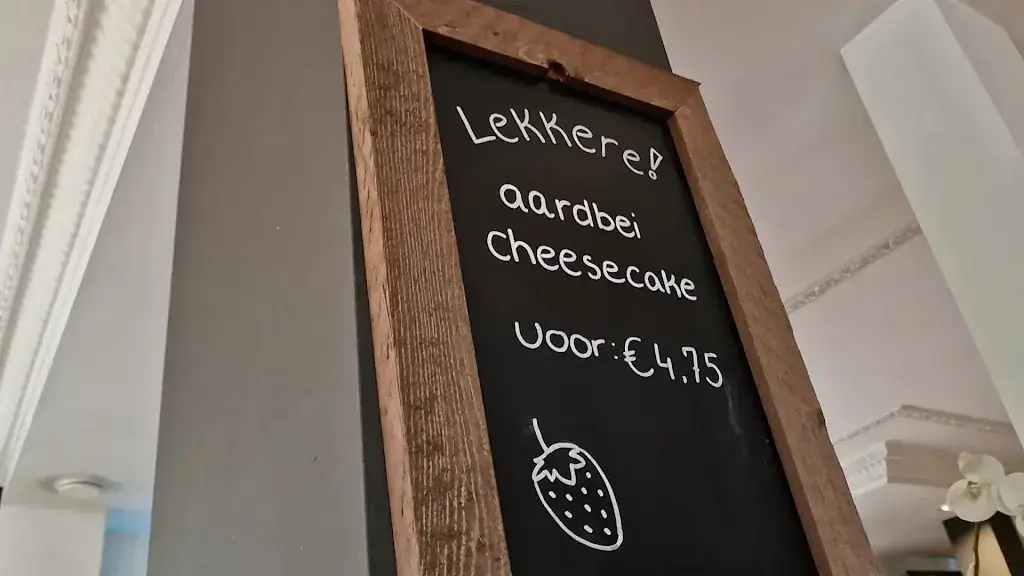 Lekkere!
aardbei
cheesecake
voor: €4,75